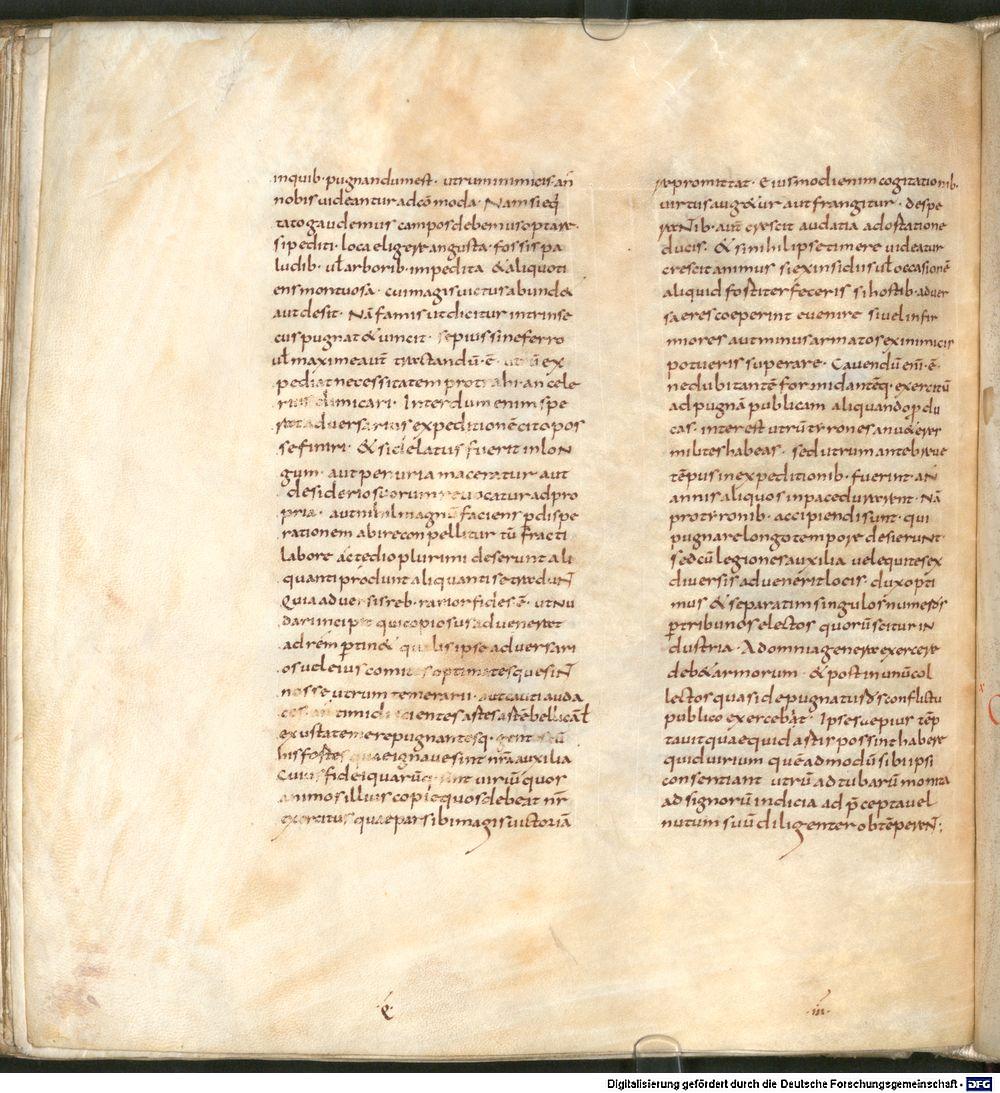 inquib· pugnandum est· utrum inimicis· an̄
nobis uideantur adcōmoda· Nam si eq̄
tato gaudemus campos debemus optare·
si pediti· loca eligere angusta· fossis pa
ludib· uł arborib· impedita & aliquoti
ens montuosa· cui magis uictus abund&
aut desit· Nā famis ut dicitur intrinse
cus pugnat & uincit· sepius sine ferro
uł maxime aut̄ tractandū· ē· utrū ex
pediat necessitatem protrahi· an cele
rius dimicari· Interdum enim spe
rat aduersarius expeditionē cito pos
se finiri· & si delatus fuerit in lon
gum· aut penuria maceratur aut
desiderio suorum reuocatur ad pro
pria· aut nihil magnū faciens p dispe
rationem abire conpellitur tū fracti
labore ac tedio plurimi deserunt ali
quanti produnt aliquanti se tradun̄
Quia aduersis reb· rarior fides ē· ut nu
dari incipit qui copiosus aduenerat
ad rem p̄tin& qualis ipse aduersari
os uel eius comites optimates quesin̄
nosse utrum temerarii· aut cauti auda
ces· an timidi scientes astes astē bellicā ł
ex usu temere pugnantesq· gentes cū
his fortes quae ignauesint nr̄a auxilia
Cuius fidei quarūq· sint uiriū quos
animos illius copiē quos debeat nr̄
exercitus quae pars sibi magis uictoriā
repromittat· Eiusmodi enim cogitationib·
uirtus aug&ur aut frangitur· despe
rantib· aut̄ crescit audatia adostatione
ducis· & si nihil ipse timere uideatur
crescit animus si ex insidiis uł occasionē
aliquid fortiter feceris si hostib· aduer
sa eres coeperint euenire si uel infir
miores aut minus armatos ex inimicis
potueris superare· Cauendū enī· ē·
ne dubitantē formidantēq· exercitū
ad pugnā publicam aliquando p̄du
cas· interest utrū tyrones an u&eres
milites habeas· sed utrum ante breue
tēpus in expeditionib· fuerint· an
annis aliquos in pace durerent· Nā
pro tyronib· accipiendi sunt· qui
pugnare longo tempore desierunt
sed cū legiones auxilia uel equites ex
diuersis aduenerit locis· dux opti
mus & separatim singulos numeros
p̄ tribunos electos quorū scitur in
dustria· Ad omnia genera exercere
deb& armorum· & post in unū col
lectos quasi depugnaturos conflictu
publico exercebat· Ipse sepius tēp
tauit quae quid artis possint habere
quid uirium quē ad modū sibi ipsi
consentiant utrū ad tubarū monita
ad signorū indicia ad p̄cepta uel
nutum suū diligenter obtēperent;
·iii·